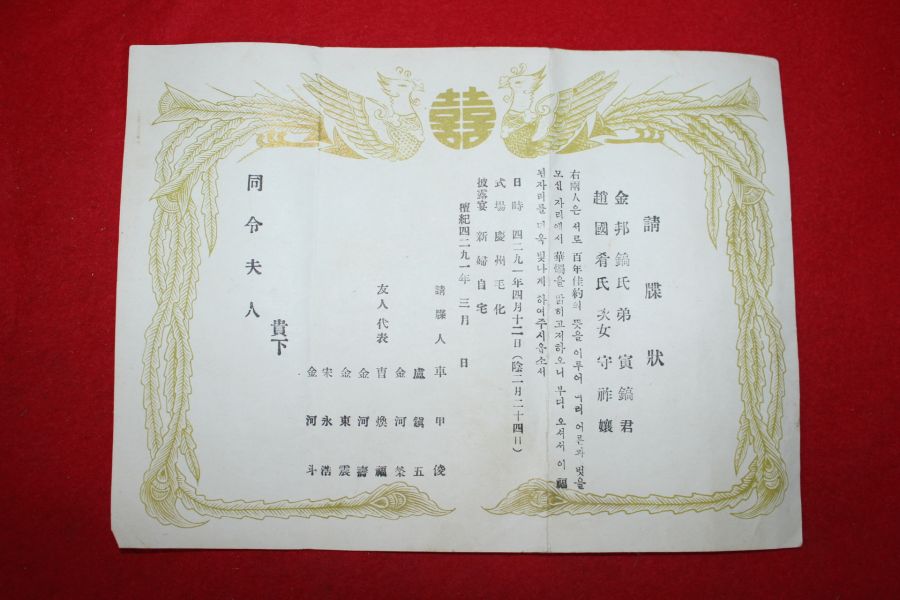 囍
請牒狀
金邦鎬氏 弟 寅鎬君
趙國肴氏 次女 守祚孃
右兩人은 서로 百年佳約의 뜻을 이루어 여러 어른과 벗을
모신 자리에서 華燭을 밝히고저하오니 부디 오셔서 이 福
된자리를 더욱 빛나게 하여주시옵소서
日時 四二九一年四月十二日(陰二月二十四日)
式場 慶州毛化
披露宴 新婦自宅
檀紀四二九一年 三月 日
請牒人 車甲俊
盧鎭五
友人代表 金河榮
曺煥福
金河壽
金東震
宋永浩
金河斗
貴下
同令夫人